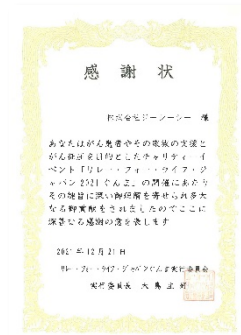 感謝状
株式会社ジーシーシー 様
あなたはがん患者やその家族の支援と
がん征圧を目的としたチャリティーイ
ベント「リレー・フォー・ライフ・ジ
ャパン2021ぐんま」の開催にあたり
その趣旨に深い御理解を寄せられ多大
なる御貢献をされましたのでここに
深甚なる感謝の意を表します
2021年12月21日
リレー・フォー・ライフ・ジャパンぐんま実行委員会
実行委員長 大島